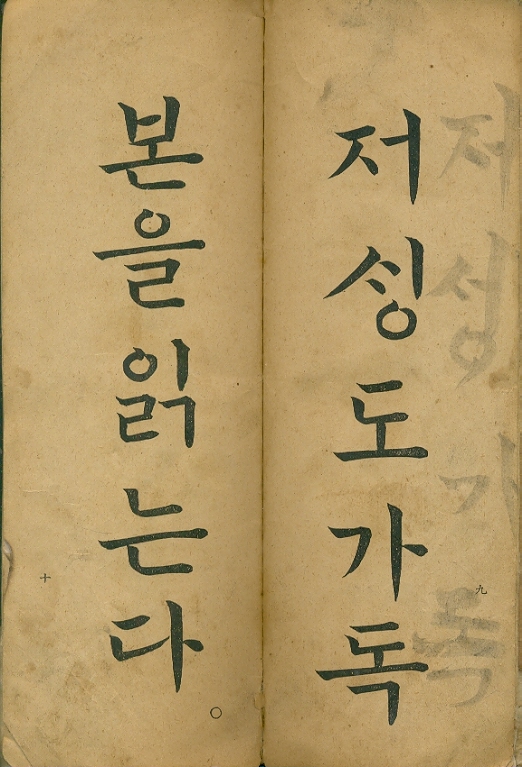 저싱도가독
九
본을읽는다
○
十